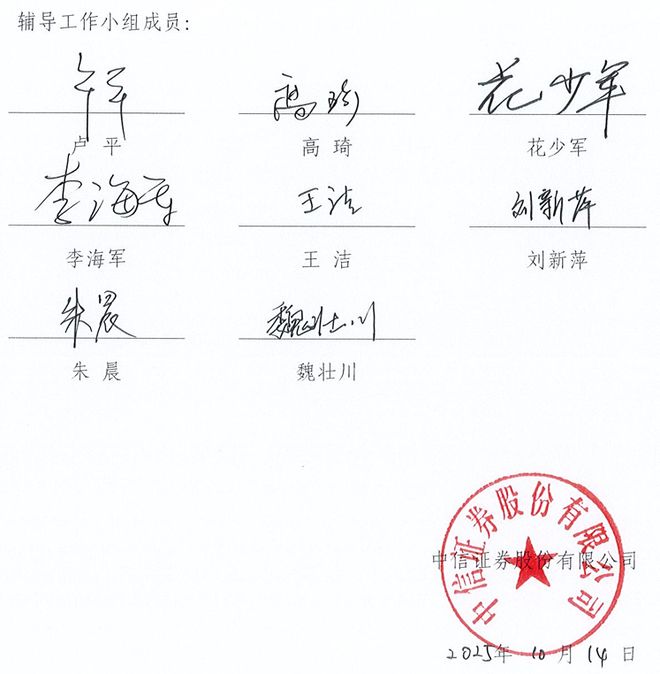 辅导工作小组成员:
卢平 高琦 花少军
卢 平 高 琦 花少军
李海军 王洁 刘新萍
李海军 王 洁 刘新萍
朱晨 魏壮川
朱 晨 魏壮川
中信证券股份有限公司
中信证券股份有限公司
2025年 10 月 14 日